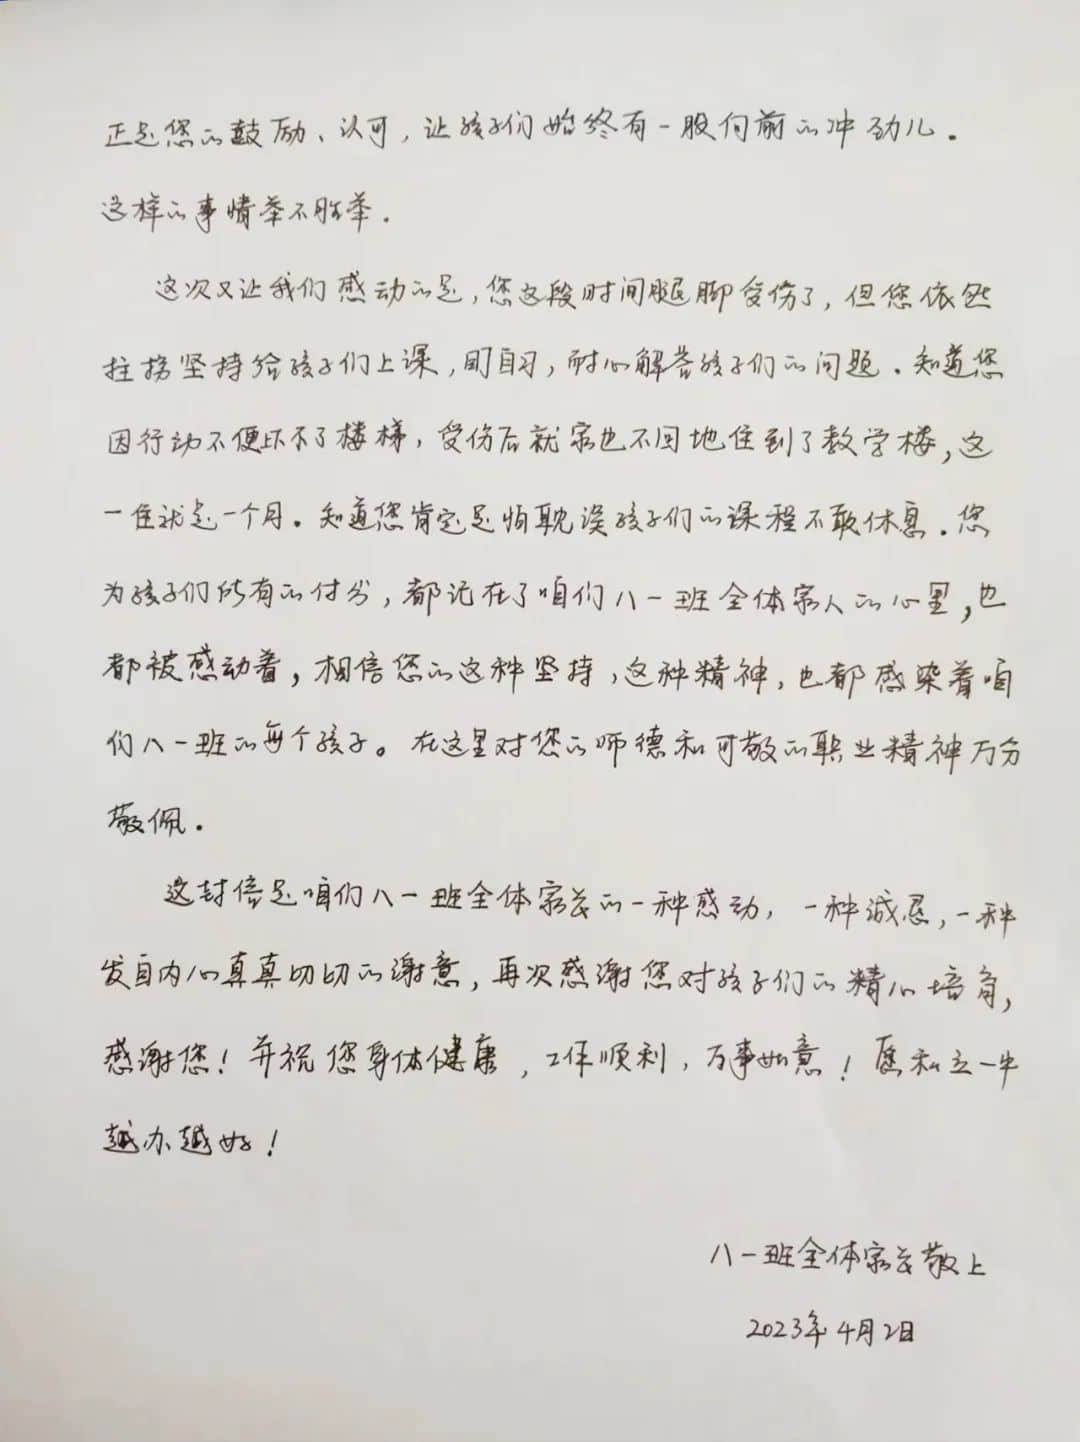 正是您的鼓励、认可，让孩子们始终有一股向前的冲劲儿。
这样的事情举不胜举.
这次又让我们感动的是，您这段时间腿脚受伤了，但您依然
拄拐坚持给孩子们上课，盯自习，耐心解答孩子们的问题。知道您
因行动不便上下不了楼梯，受伤后就家也不回地住到了教学楼，这
一住就是一个月。知道您肯定是怕耽误孩子们的课程不敢休息.您
为孩子们所有的付出，都记在了咱们八一班全体家人的心里，也
都被感动着，相信您的这种坚持，这种精神，也都感染着咱
们八一班的每个孩子。在这里对您的师德和可敬的职业精神万分
敬佩.
这封信是咱们八一班全体家长的一种感动，一种诚恳，一种
发自内心真真切切的谢意，再次感谢您对孩子们的精心培育，
感谢您！并祝您身体健康，工作顺利，万事如意！愿私立一中
越办越好！
八一班全体家长敬上
2023年4月2日